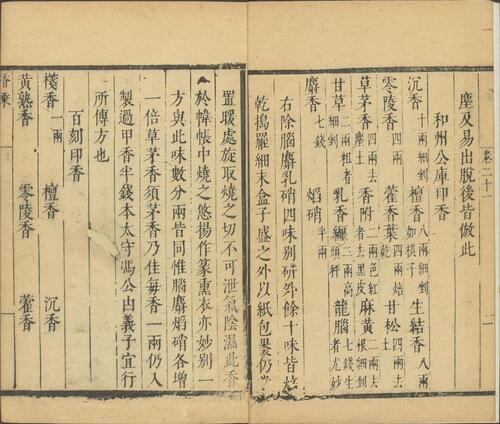 卷二十一
一
塵及易出脫後皆倣此
和州公庫印香
沉香十兩細剉 檀香八兩細剉如棋子 生結香八兩
零陵香四兩 藿香葉四兩焙乾 甘松四兩去土
草茅香四兩去塵土 香附二兩色紅者去黑皮 麻黃二兩去根細剉
甘草二兩粗者細剉 乳香纏二兩高頭秤 龍腦七錢生者尤妙
麝香七錢 焰硝半兩
右除腦麝乳硝四味別研外餘十味皆焙
乾搗羅細末盒子盛之外以紙包裹仍常
置暖處旋取燒之切不可泄氣陰濕此香
於幃帳中燒之悠揚作篆熏衣亦妙別一
方與此味數分兩皆同惟腦麝焰硝各增
一倍草茅香須茅香乃佳每香一兩仍入
製過甲香半錢本太守馮公由義子宜行
所傳方也
百刻印香
棧香一兩 檀香 沉香
黃熟香 零陵香 藿香
香乘